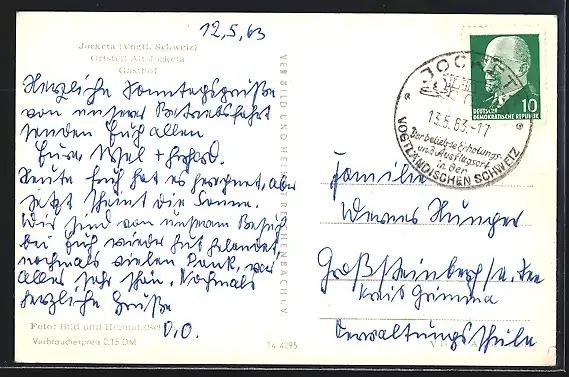 12,5,63
Jocketa (Vogtl. Schweiz)
Ortsteil Alt Jocketa
Gasthof
Herzliche Sonntagsgrüße
von unserer Betriebsfahrt
senden Euch allen
Eure Ursel + Gerhard.
Heute früh hat es geregnet, aber
jetzt scheint die Sonne.
Wir sind von unserem Besuch
bei Euch wieder gut gelandet,
nochmals vielen Dank, war
alles sehr schön. Nochmals
herzliche Grüße
D.O.
Foto: Bild und Heimat
Verbraucherpreis 0,15 DM
14 4295
VERLAG BILD UND HEIMAT REICHENBACH I. V.
JOCKETA
13.5.63.-17
Der beliebte Erholungs-
und Ausflugsort
in der
VOGTLÄNDISCHEN SCHWEIZ
10
DEUTSCHE
DEMOKRATISCHE REPUBLIK
Familie
Werner Hunger
Großsteinberg/a. See
Kreis Grimma
Verwaltungsschule